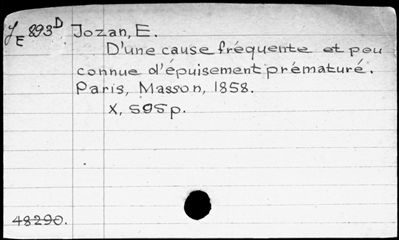 Y E 893 D Jozan, E.
D'une cause fréquente et peu
connue d'épuisement prématuré.
Paris, Masson, 1858.
X, 595p.
48290.